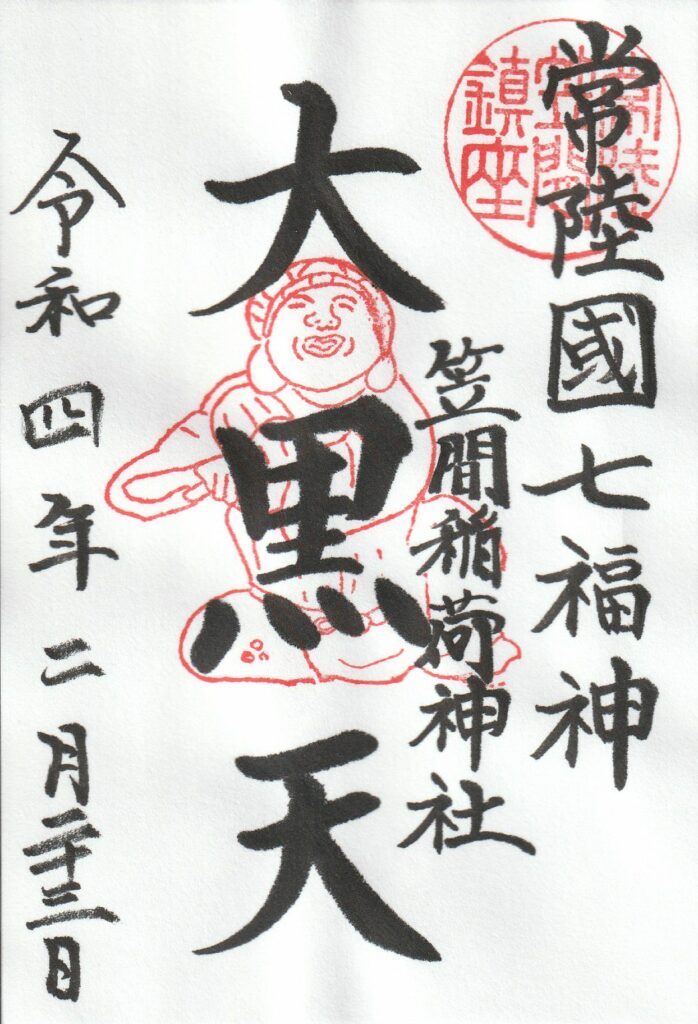 常陸國七福神
常陸
笠間
鎮座
笠間稲荷神社
大黒天
令和四年二月二十三日